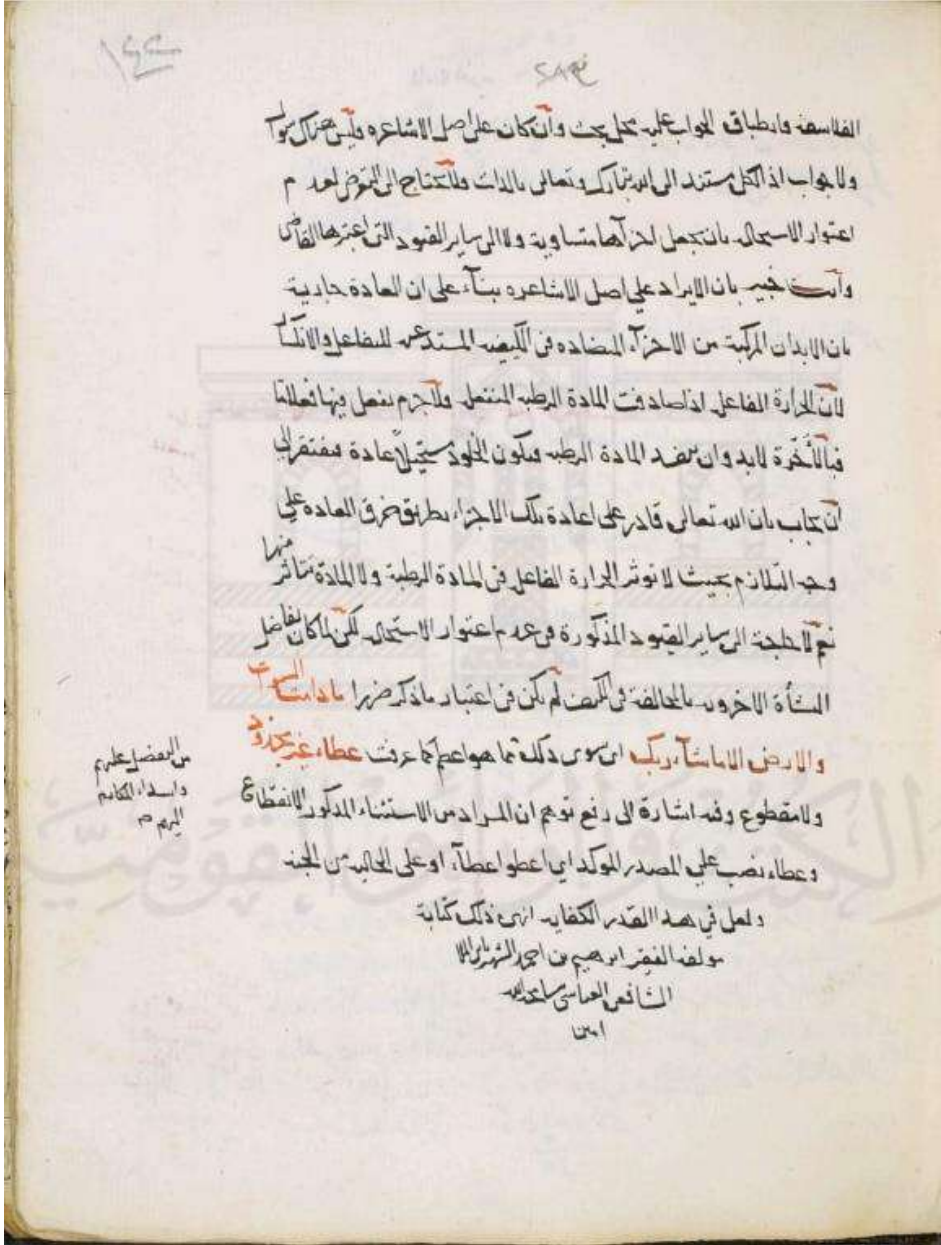 الفلاسفة وانطباق الجواب عليه محل بحث وان كان على اصل الاشاعره فليس هناك سوال
ولا جواب اذ الكل مستند الى الله تبارك وتعالى بالذات ولا يحتاج الى التعرض لعدم
اعتوار الاستحالة بان تجعل اجزآها متساوية ولا الى ساير القيود التى اعتبرها القاضى
وأنت خبير بان الايراد على اصل الاشاعره بنآء على ان العادة جارية
بان الابدان المركبة من الاجزآء المتضاده فى الكيفيه المستدعيه للتفاعل والانكسار
لان الحرارة الفاعلة اذا صادفت المادة الرطبه المنفعلة ولا جرم تفعل فيها فعلا تا
فبالأخرة لابد وان تنفد المادة الرطبه فيكون الخلود مستحيلاً عادة فيفتقر الى
أن يجاب بان الله تعالى قادر على اعادة تلك الاجزاء بطريق خرق العاده على
وجه التلازم بحيث لا توثر الحرارة الفاعلة فى المادة الرطبة ولا المادة تتاثر منها
نعم لا حاجة الى ساير القيود المذكورة فى عدم اعتوار الاستحالة لكن لما كان تفاضل
النشأة الاخرويه بالمخالفة فى الكيف لم يكن فى اعتبار ما ذكر ضررا ما دامت السموات
والارض الا ما شآء ربك اى سوى ذلك مما هو اعظم كما عرفت عطاء غير مجذوذ
ولا مقطوع وفيه اشارة الى رفع توهم ان المراد من الاستثناء المذكور الانقطاع
وعطاء نصب على المصدر الموكد اي اعطوا اعطآء او على الحاليه من الجنة
ولعل فى هذا القدر الكفاية انهى ذلك كتابة
مولفه الفقير ابرهيم بن احمد الشهير بابن الملا
الشافعى العباسى سامحه الله
امين
من التفضل عليهم
واسداء المكارم
اليهم